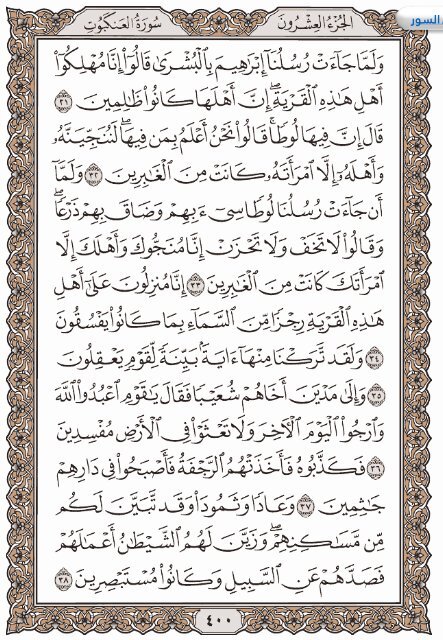 السور
سُورَةُ العَنكَبُوتِ
الجُزْءُ العِشْرُونَ
وَلَمَّا جَآءَتْ رُسُلُنَآ إِبْرَٰهِيمَ بِٱلْبُشْرَىٰ قَالُوٓا۟ إِنَّا مُهْلِكُوٓا۟
أَهْلِ هَٰذِهِ ٱلْقَرْيَةِ ۖ إِنَّ أَهْلَهَا كَانُوا۟ ظَٰلِمِينَ ٣١
قَالَ إِنَّ فِيهَا لُوطًا ۚ قَالُوا۟ نَحْنُ أَعْلَمُ بِمَن فِيهَا ۖ لَنُنَجِّيَنَّهُۥ
وَأَهْلَهُۥٓ إِلَّا ٱمْرَأَتَهُۥ كَانَتْ مِنَ ٱلْغَٰبِرِينَ ٣٢ وَلَمَّآ
أَن جَآءَتْ رُسُلُنَا لُوطًا سِىٓءَ بِهِمْ وَضَاقَ بِهِمْ ذَرْعًا ۖ
وَقَالُوا۟ لَا تَخَفْ وَلَا تَحْزَنْ ۖ إِنَّا مُنَجُّوكَ وَأَهْلَكَ إِلَّا
ٱمْرَأَتَكَ كَانَتْ مِنَ ٱلْغَٰبِرِينَ ٣٣ إِنَّا مُنزِلُونَ عَلَىٰٓ أَهْلِ
هَٰذِهِ ٱلْقَرْيَةِ رِجْزًا مِّنَ ٱلسَّمَآءِ بِمَا كَانُوا۟ يَفْسُقُونَ
٣٤ وَلَقَد تَّرَكْنَا مِنْهَآ ءَايَةًۢ بَيِّنَةً لِّقَوْمٍ يَعْقِلُونَ
٣٥ وَإِلَىٰ مَدْيَنَ أَخَاهُمْ شُعَيْبًا فَقَالَ يَٰقَوْمِ ٱعْبُدُوا۟ ٱللَّهَ
وَٱرْجُوا۟ ٱلْيَوْمَ ٱلْءَاخِرَ وَلَا تَعْثَوْا۟ فِى ٱلْأَرْضِ مُفْسِدِينَ
٣٦ فَكَذَّبُوهُ فَأَخَذَتْهُمُ ٱلرَّجْفَةُ فَأَصْبَحُوا۟ فِى دَارِهِمْ
جَٰثِمِينَ ٣٧ وَعَادًا وَثَمُودَا۟ وَقَد تَّبَيَّنَ لَكُم
مِّن مَّسَٰكِنِهِمْ ۖ وَزَيَّنَ لَهُمُ ٱلشَّيْطَٰنُ أَعْمَٰلَهُمْ
فَصَدَّهُمْ عَنِ ٱلسَّبِيلِ وَكَانُوا۟ مُسْتَبْصِرِينَ ٣٨
٤٠٠